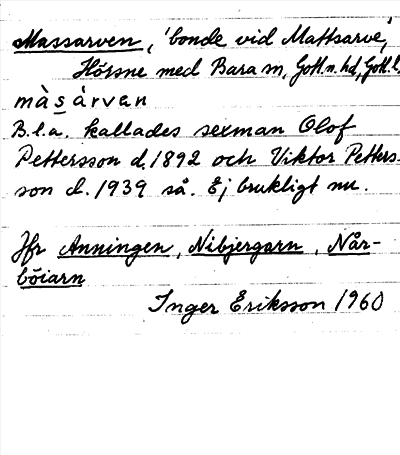 Massarven, 'bonde vid Mattsarve,'
Hörsne med Bara sn, Gotl. n. hd, Gotl. l.
màsárvan
B.l.a. kallades sexman Olof
Pettersson d. 1892 och Viktor Petters-
son d. 1939 så. Ej brukligt nu.
Jfr Anningen, Nibjergarn, Når-
böiarn
Inger Eriksson 1960